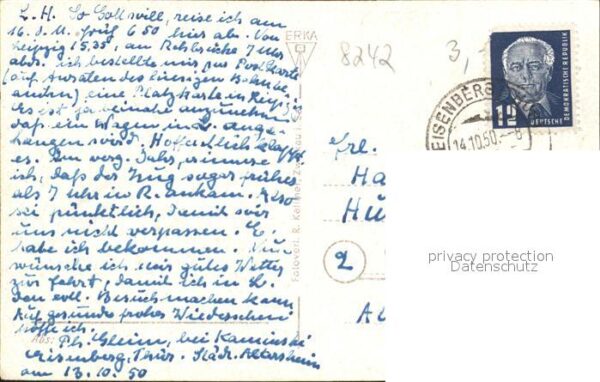 L. H. So Gott will, reise ich am
16. d. M. früh 6 50 hier ab. Von
Leipzig 15.35, an Rehbrücke 7 Uhr
abds. Ich bestellte mir per Postkarte
(auf Anraten des hiesigen Bahnbe-
amten) eine Platzkarte in Leipzig.
Es ist ja beinahe anzunehmen
daß ein Wagen in L. ange-
hangen wird. Hoffentlich klappt
es. Im vorg. Jahr, erinnere
ich, daß der Zug sogar früher
als 7 Uhr in R. ankam. Also
sei pünktlich, damit wir
uns nicht verpassen. E.
habe ich bekommen. Nun
wünsche ich mir gutes Wetter
zur Fahrt, damit ich in L.
den evll. Besuch machen kann
Auf gesundes frohes Wiedersehen
hoffe ich.
Abs: Ph. Gleim, bei Kaminski
Eisenberg, Thür. Städt. Altersheim
am 13.10.50
ERKA
Fotoverl. R.
8242
3,
EISENBERG
14.10.50.-8
12
DEUTSCHE DEMOKRATISCHE REPUBLIK
Frl.
Ha
Hü
2
privacy protection
Datenschutz